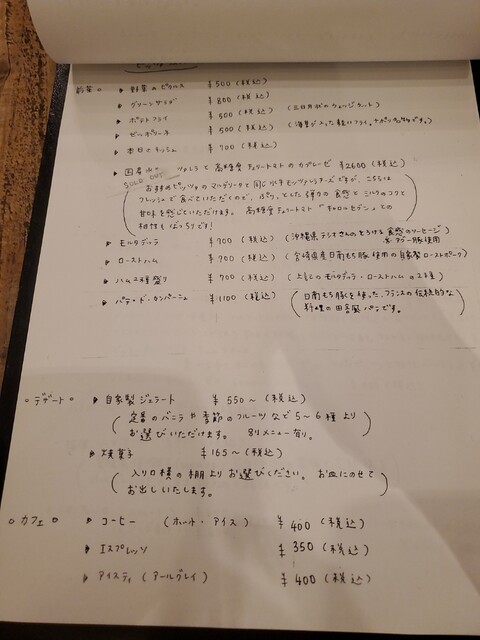 前菜。 ▶ 野菜のピクルス ¥500(税込)
▶ グリーンサラダ ¥800(税込)
▶ ポテトフライ ¥500(税込) (三日月状のウェッジカット)
▶ ゼッポリーネ ¥500(税込)
▶ 本日のキッシュ ¥700(税込)
▶ 国産水牛 モッツァレラと高糖度チェリートマトのカプレーゼ ¥2600(税込)
SOLD OUT
おすすめピッツァのマルゲリータと同じ水牛モッツァレラチーズですが、こちらは
フレッシュで食べていただくので、ぷりっとした弾力の食感とミルクのコクと
甘味を感じていただけます。高糖度チェリートマト「キャロルセブン」との
相性もばっちりです!
▶ モルタデッラ ¥700(税込) (沖縄県テシオさんのとろける食感のソーセージ)
※アグー豚使用
▶ ローストハム ¥700(税込) (宮崎県産日南もち豚使用の自家製ローストポーク)
▶ ハム2種盛り ¥900(税込) (上記のモルタデッラ・ローストハムの2種)
▶ パテ・ド・カンパーニュ ¥1100(税込) (日南もち豚を使った、フランスの伝統的な
料理の田舎風パテです。)
○デザート○ ▶ 自家製ジェラート ¥550〜(税込)
(定番のバニラや季節のフルーツなど5〜6種より
お選びいただけます。 別メニュー有り。)
▶ 焼菓子 ¥165〜(税込)
(入り口横の棚よりお選びください。お皿にのせて
お出しいたします。)
○カフェ○ ▶ コーヒー (ホット・アイス) ¥400(税込)
▶ エスプレッソ ¥350(税込)
▶ アイスティ(アールグレイ) ¥400(税込)